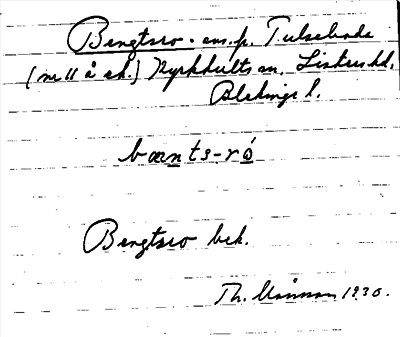 Bengtsro. ens. p. Tulseboda
(nr 11 å sk.) Kyrkhults sn. Listers hd.
Blekinge l.
bænts-ró
Bengtsro bek.
Th. Mårman 1930.